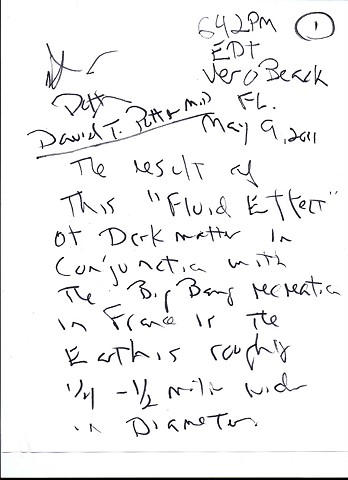 642PM 1
EDT
Vero Beach
FL.
David T. M.D
May 9, 2011
The result of
This "Fluid Effect"
of Dark matter in
Conjunction with
The Big Bang recreation
in France is The
Earth is roughly
1/4 - 1/2 mile wider
in Diameter.